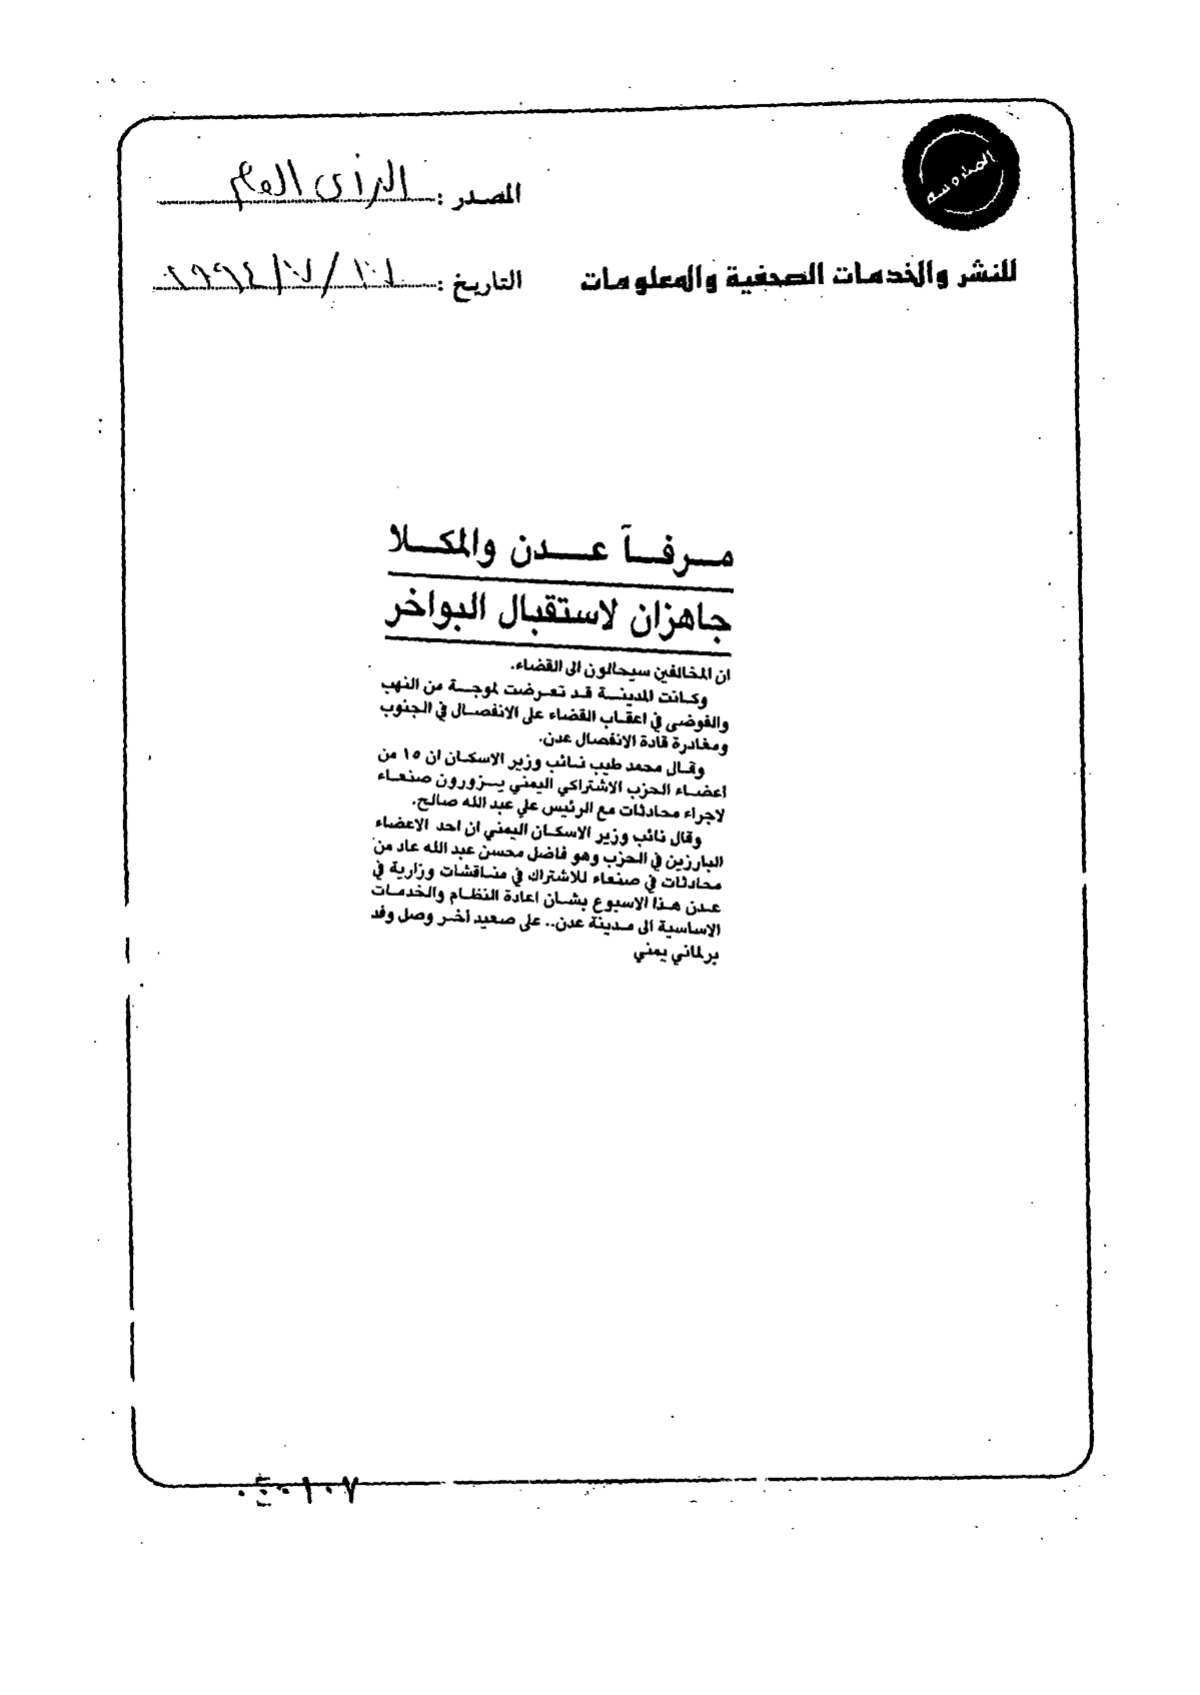 المصدر : الرأى العام
للنشر والخدمات الصحفية والمعلومات
التاريخ :
مرفآ عدن والمكلا
جاهزان لاستقبال البواخر
ان المخالفين سيحالون الى القضاء.
وكانت المدينة قد تعرضت لموجة من النهب
والفوضى في اعقاب القضاء على الانفصال في الجنوب
ومغادرة قادة الانفصال عدن.
وقال محمد طيب نائب وزير الاسكان ان ١٥ من
أعضاء الحزب الاشتراكي اليمني يزورون صنعاء
لاجراء محادثات مع الرئيس علي عبد الله صالح.
وقال نائب وزير الاسكان اليمني ان احد الاعضاء
البارزين في الحزب وهو فاضل محسن عبد الله عاد من
محادثات في صنعاء للاشتراك في مناقشات وزارية في
عدن هذا الاسبوع بشان اعادة النظام والخدمات
الاساسية الى مدينة عدن.. على صعيد أخر وصل وفد
برلماني يمني